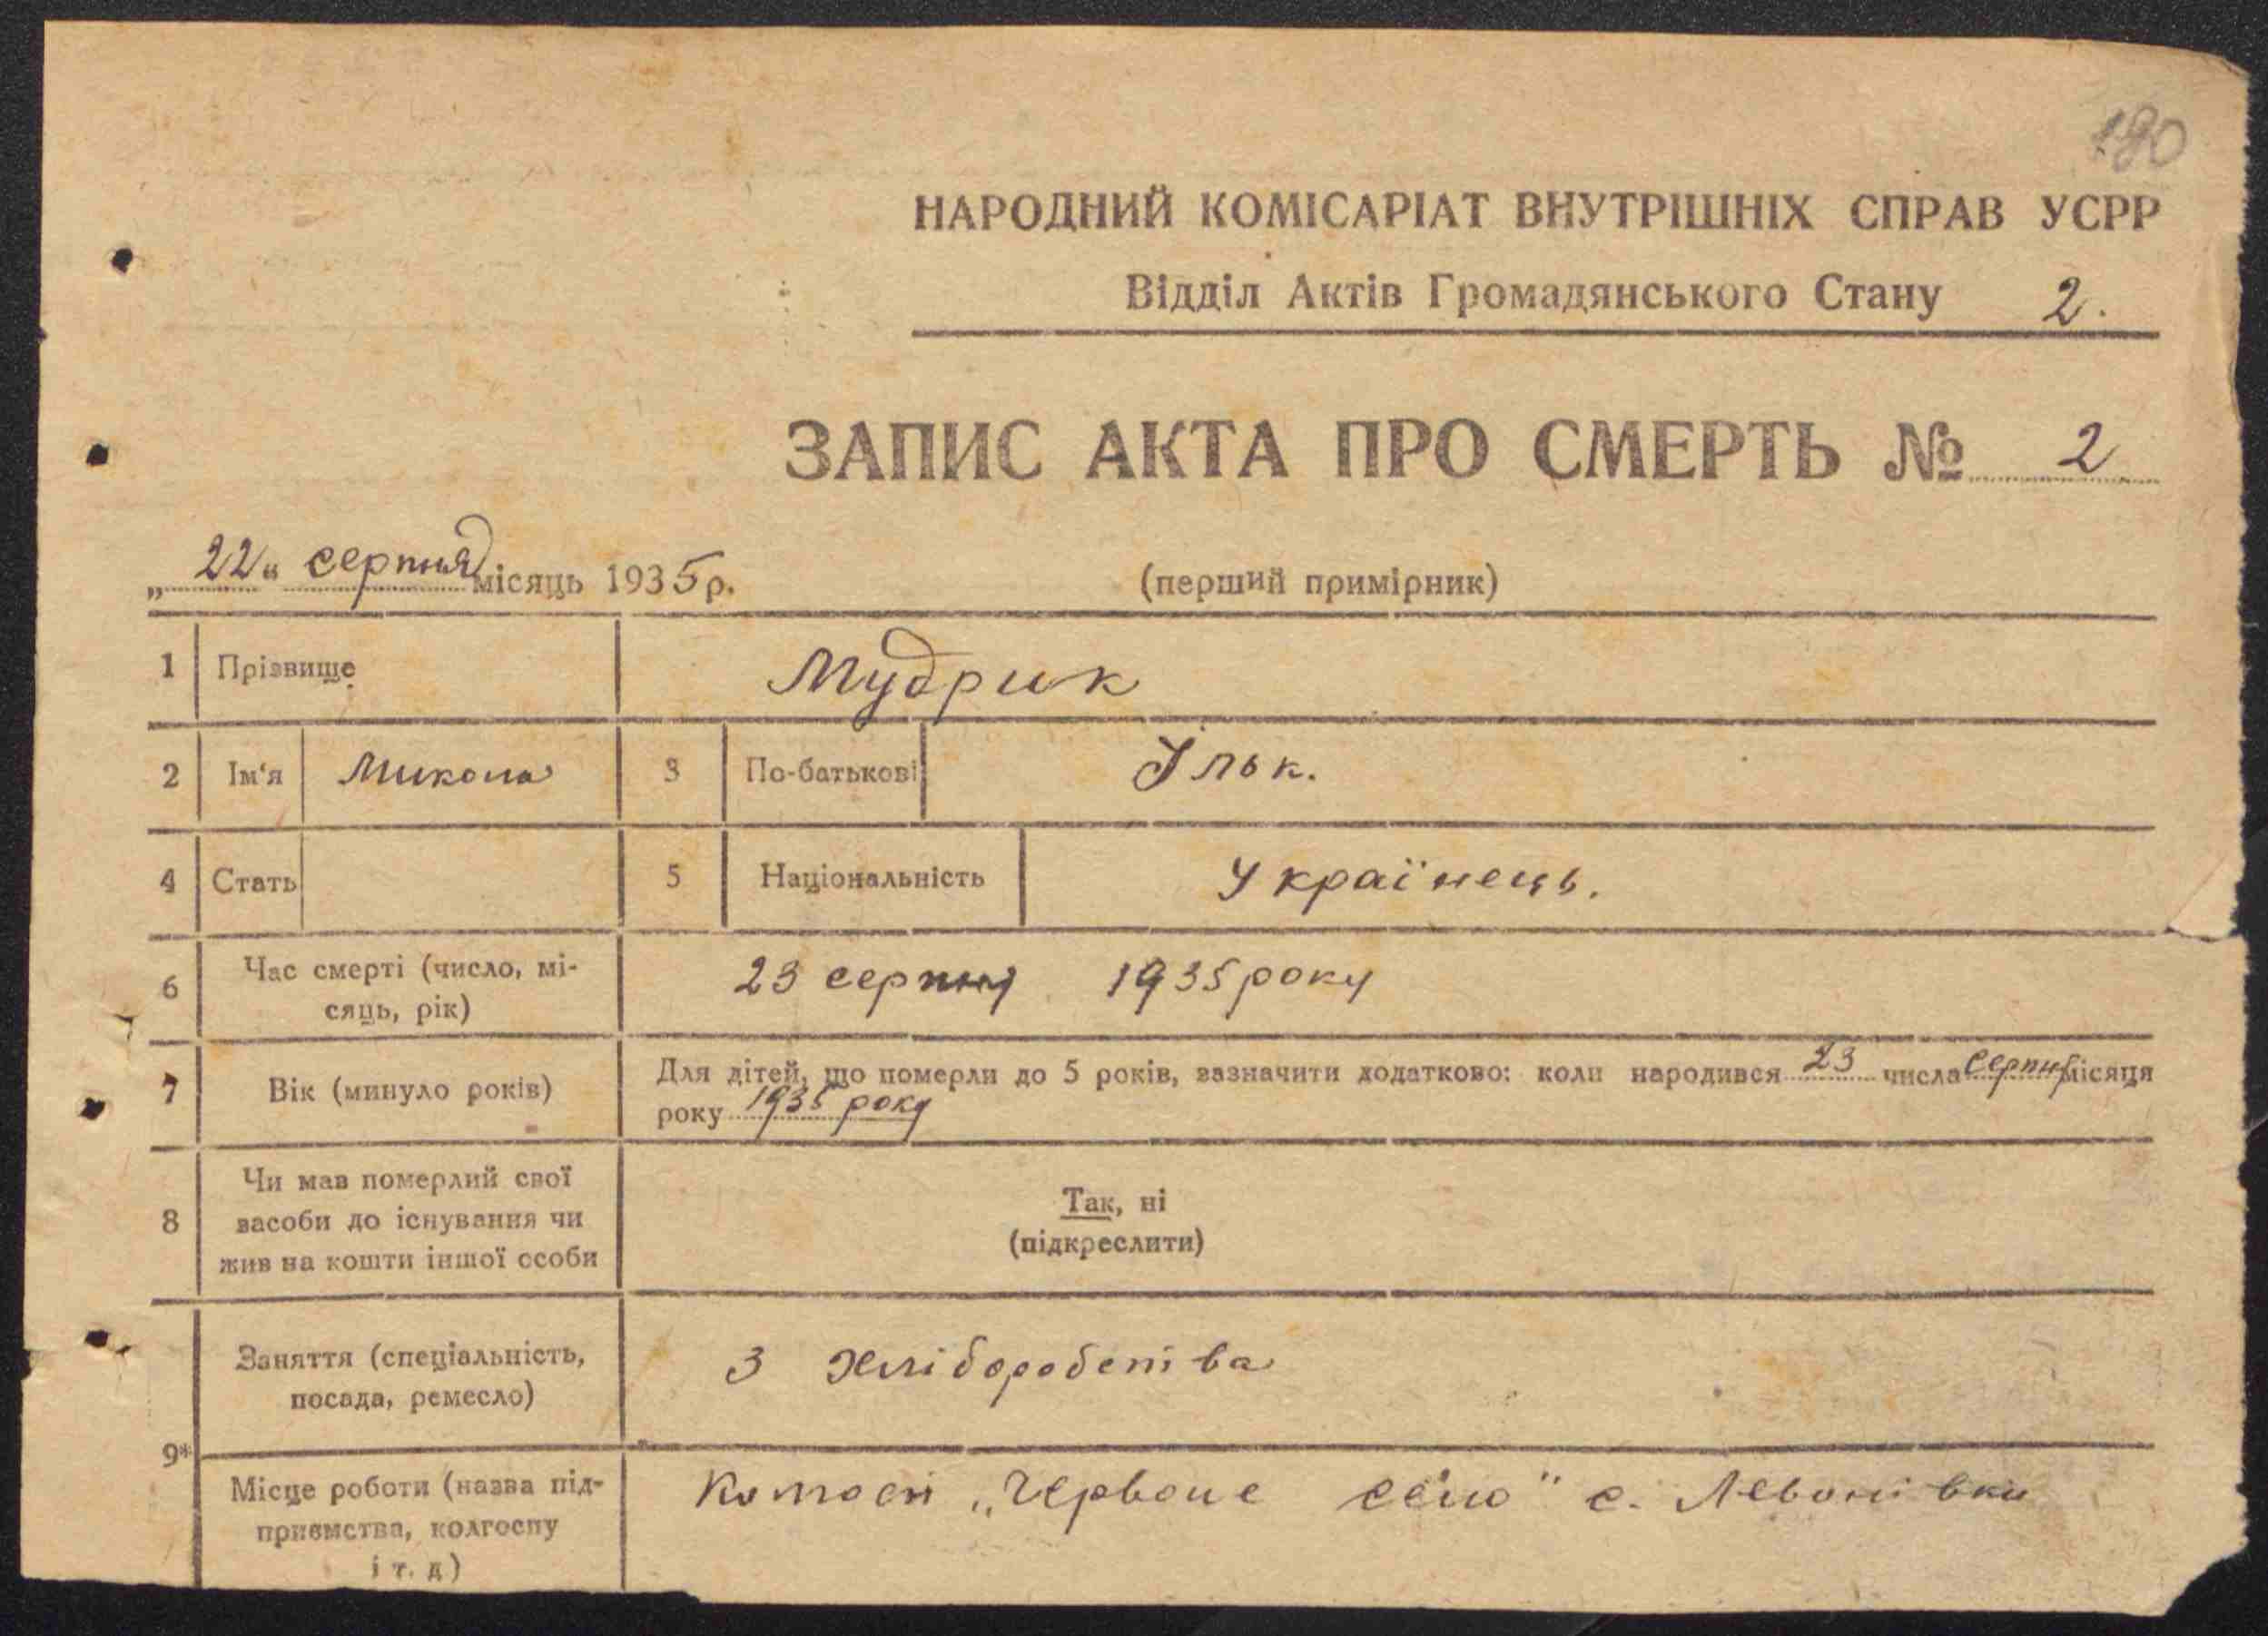 190
НАРОДНИЙ КОМІСАРІАТ ВНУТРІШНІХ СПРАВ УСРР
Відділ Актів Громадянського Стану 2.
ЗАПИС АКТА ПРО СМЕРТЬ № 2
„22“ серпня місяць 1935 р. (перший примірник)
1 Прізвище Мудрик
2 Ім‘я Микола 3 По-батькові Ільк.
4 Стать 5 Національність Українець.
6 Час смерті (число, мі-
сяць, рік) 23 серпня 1935 року
7 Вік (минуло років) Для дітей, що померли до 5 років, зазначити додатково: коли народився 23 числа серпня місяця
року 1935 року
8 Чи мав померлий свої
засоби до існування чи
жив на кошти іншої особи
Так, ні
(підкреслити)
9* Заняття (спеціальність,
посада, ремесло) З хліборобства
Місце роботи (назва під-
приємства, колгоспу
і т. д) „Червоне село" с. Левонівки